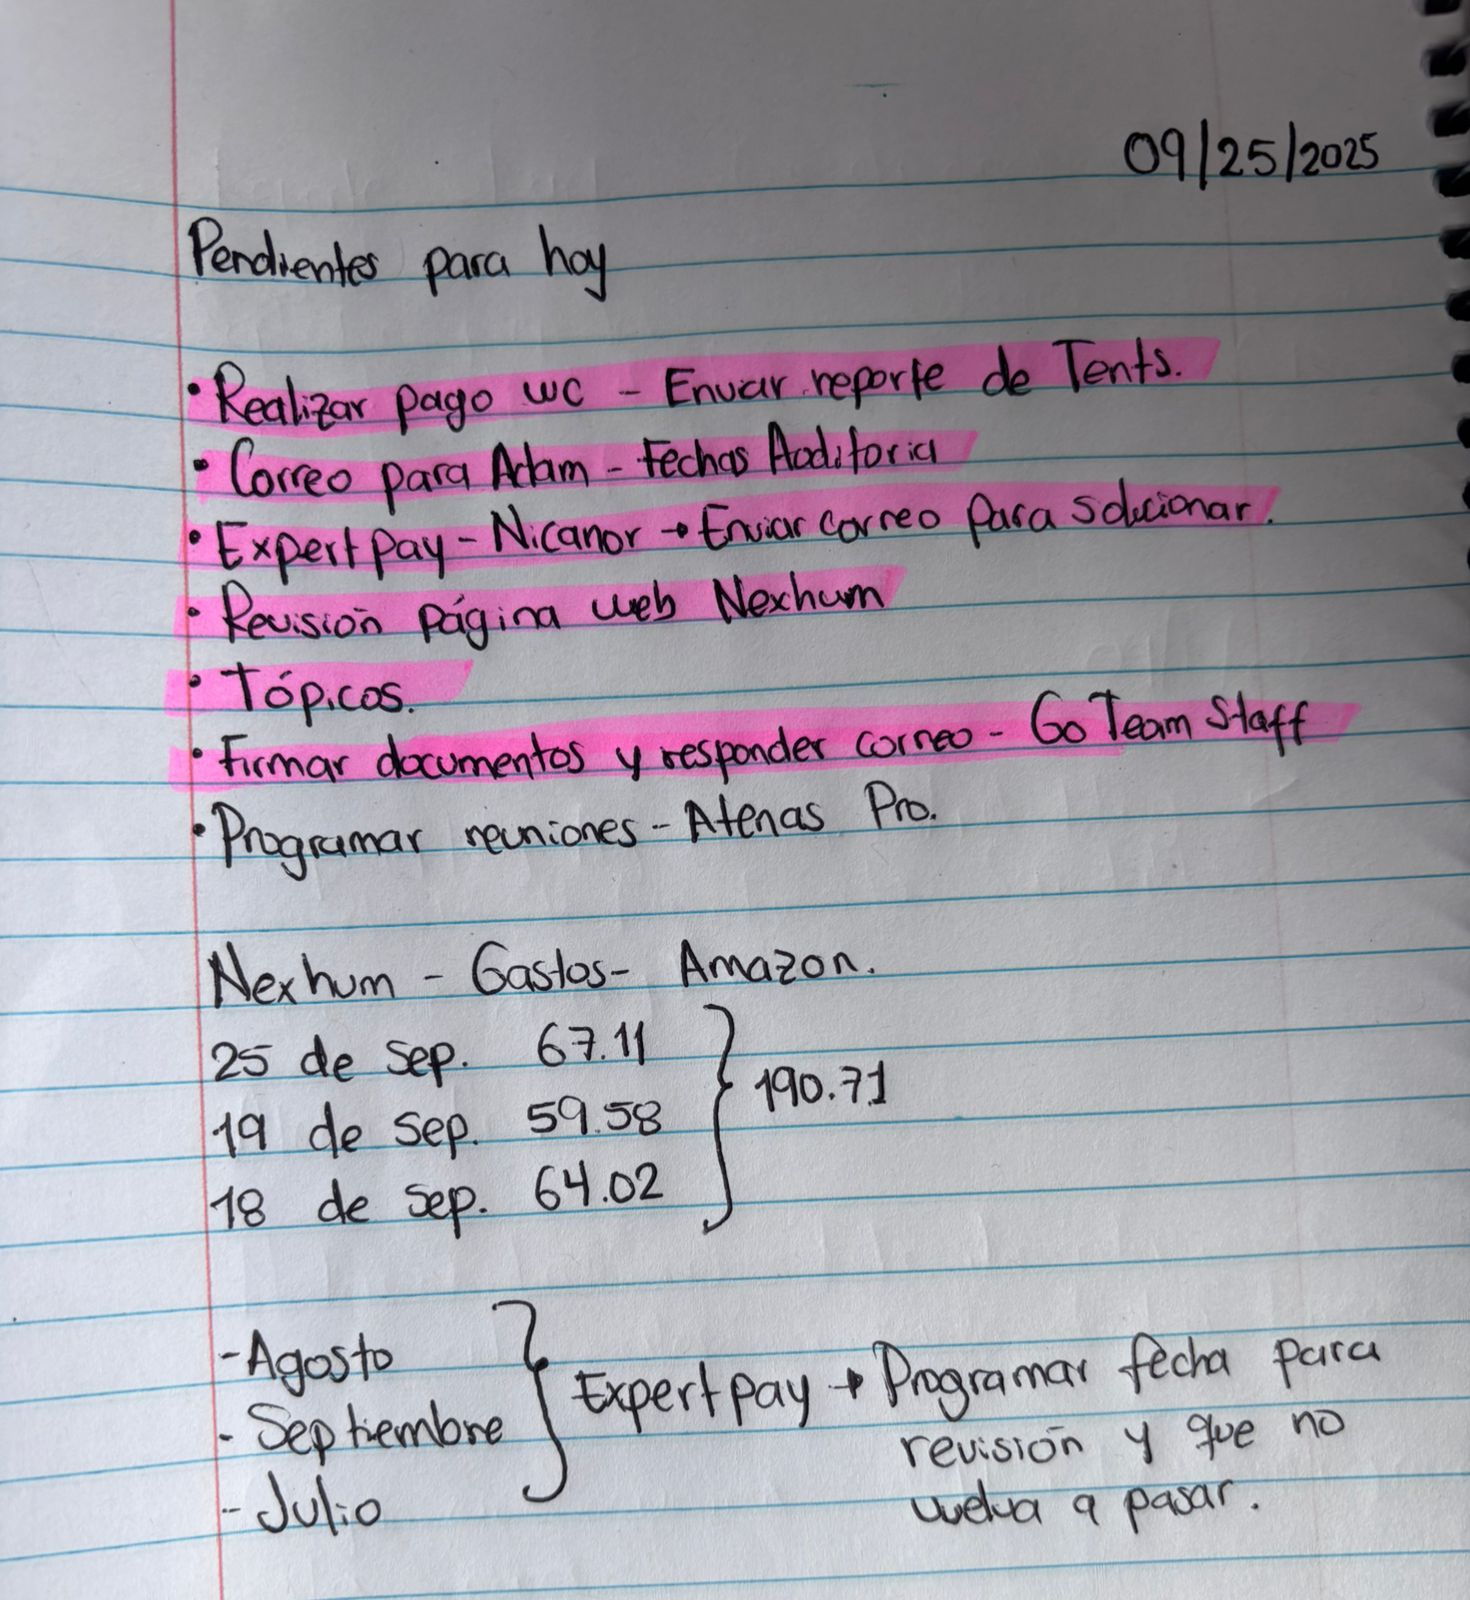 09/25/2025
Pendientes para hoy
• Realizar pago WC - Enviar reporte de Tents.
• Correo para Adam - Fechas Auditoria
• Expertpay - Nicanor → Enviar correo para solucionar.
• Revisión página web Nexhum
• Tópicos.
• Firmar documentos y responder correo - Go Team Staff
• Programar reuniones - Atenas Pro.
Nexhum - Gastos - Amazon.
25 de sep. 67.11
19 de sep. 59.58 } 190.71
18 de sep. 64.02
- Agosto
- Septiembre } Expertpay → Programar fecha para
revisión y que no
- Julio vuelva a pasar.